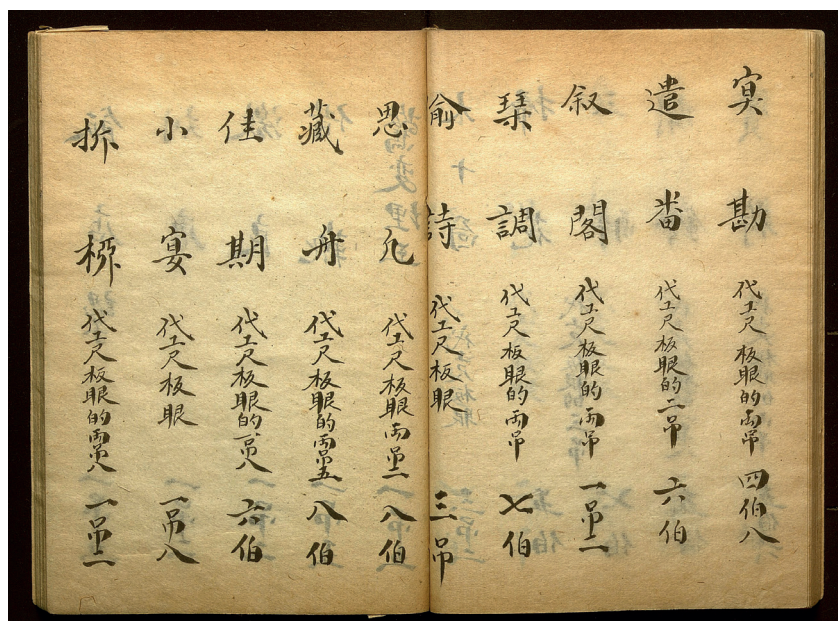 冥勘 代工尺板眼的兩吊 四伯八
遣畨 代工尺板眼的二吊 六伯
叙閣 代工尺板眼的兩吊 一吊二
琹調 代工尺板眼的兩吊 七伯
俞詩 代工尺板眼 三吊
思凡 代工尺板眼兩吊二 八伯
藏舟 代工尺板眼的兩吊五 八伯
佳期 代工尺板眼的一吊八 六伯
小宴 代工尺板眼 一吊八
拆 代工尺板眼的兩吊八 一吊二